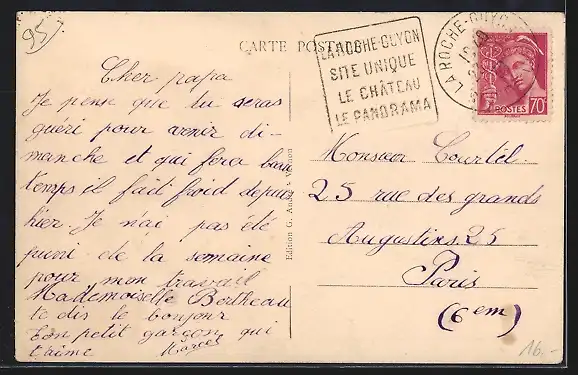 95
CARTE POSTALE
LA ROCHE-GUYON
SITE UNIQUE
LE CHÂTEAU
LE PANORAMA
LA ROCHE-GUYON
POSTES 70
Cher papa
Je pense que tu seras
guéri pour venir di-
manche et qui fera beau
temps il fait froid depuis
hier. Je n'ai pas été
puni de la semaine
pour mon travail
Mademoiselle Bertheau
te dis le bonjour
Ton petit garçon qui
t'aime Marcel
Edition G.
Monsieur Courtel.
25 rue des grands
Augustins. 25
Paris
(6em)
16.-